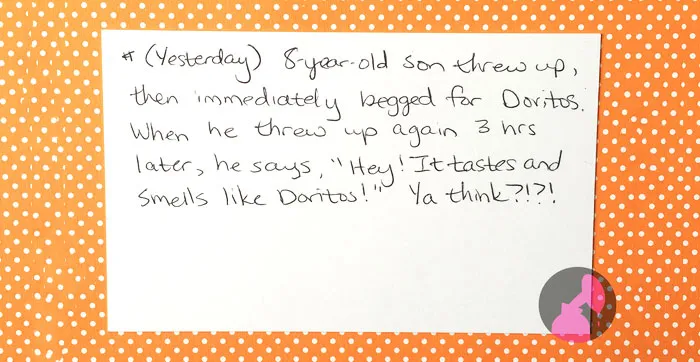 * (Yesterday) 8-year-old son threw up,
then immediately begged for Doritos.
When he threw up again 3 hrs
later, he says, "Hey! It tastes and
smells like Doritos!" Ya think?!?!